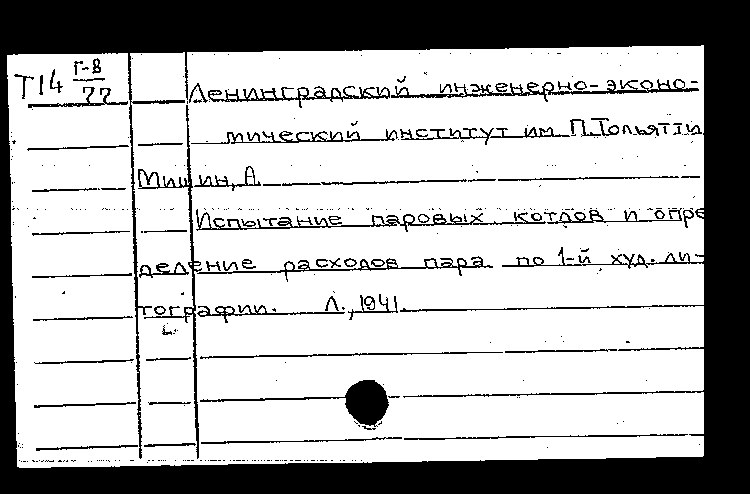 Т14 Г-В/77
Ленинградский инженерно-эконо-
мический институт им. П.Тольятти
Мишин, А.
Испытание паровых котлов и опре
деление расходов пара по 1-й худ. ли-
тографии. Л., 1941.